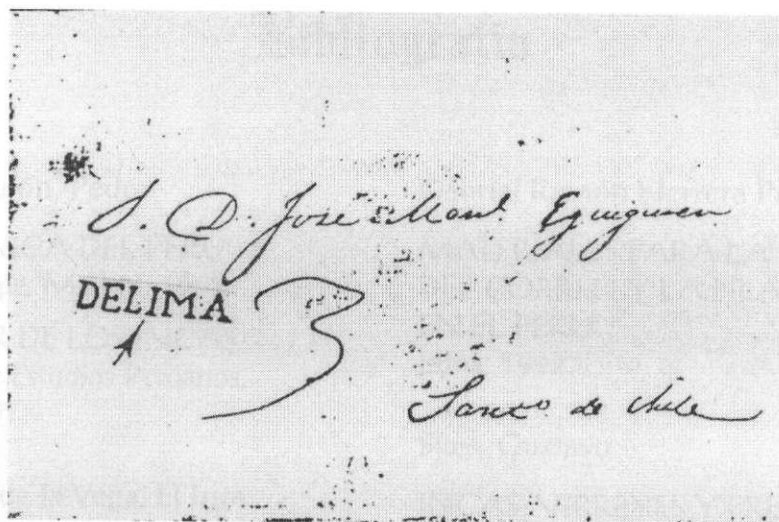 S. D. José Manl. Eguiguren
DELIMA 3
Santo. de Chile